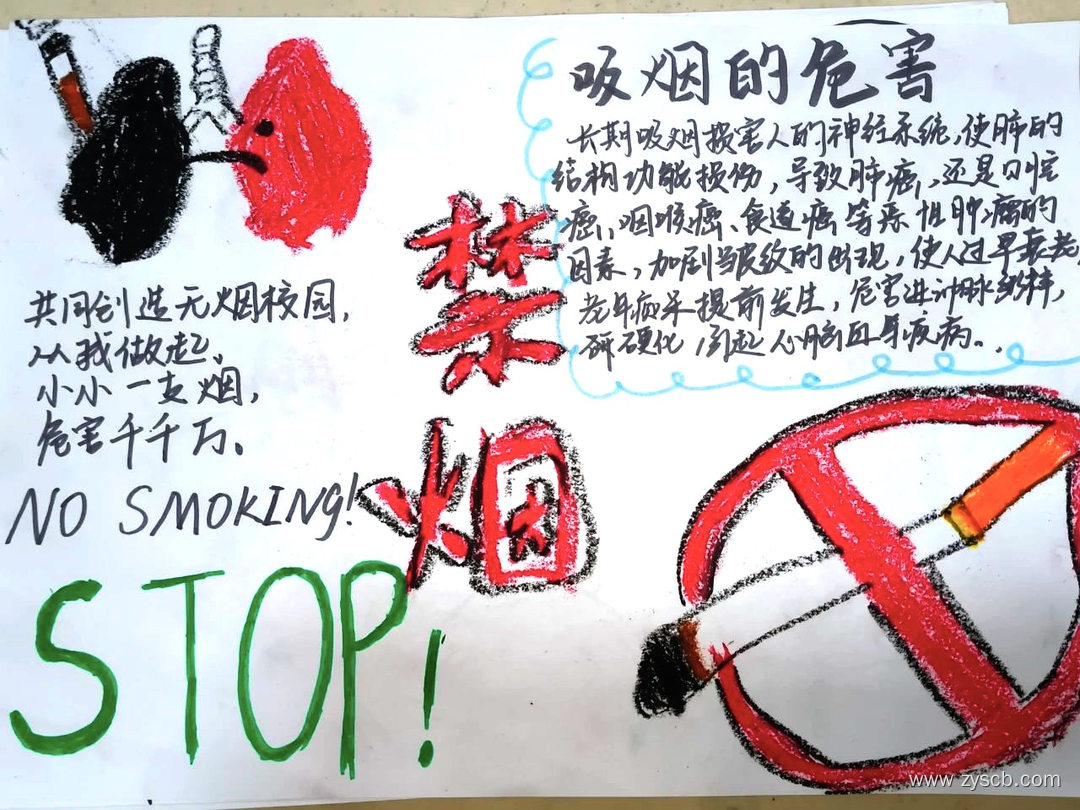 吸烟的危害
长期吸烟损害人的神经系统,使肺的
结构功能损伤,导致肺癌、还是口腔
癌、咽喉癌、食道癌等恶性肿瘤的
因素,加剧皱纹的出现,使人过早衰老,
老年痴呆提前发生,危害
硬化 心脑血 疾病..
禁
烟
共同创造无烟校园,
从我做起、
小小一支烟,
危害千千万。
NO SMOKING!
STOP!
www.zyscb.com